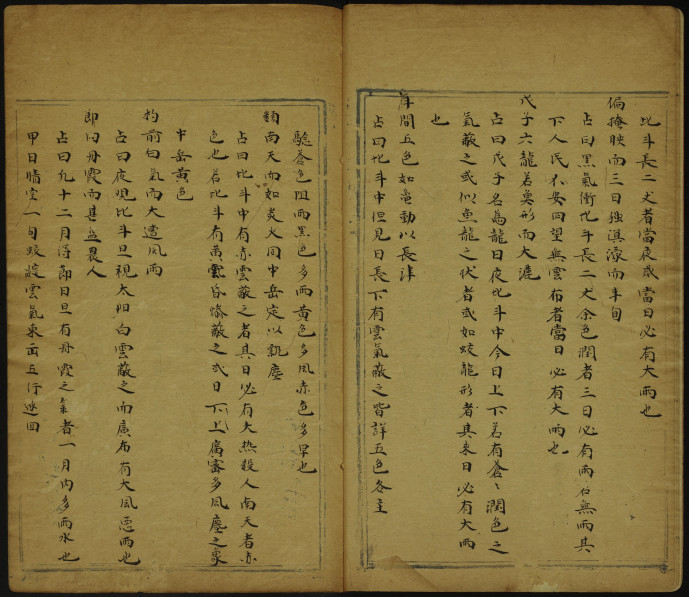 北斗長二丈者當夜或當日必有大雨也
偏掩映而三日猶溟濛而半旬
占曰黑氣衝北斗長二丈余色潤者三日必有雨如無雨其
下人民不安四望無雲布者當日必有大雨也
戊子六龍若奠形而大漉
占曰戊子名為龍日夜北斗中今日上下若有蒼〻潤色之
氣蔽之或似魚龍之狀者或如蛟龍形者其來日必有大雨
也
年間五色如竜動以長津
占曰北斗中但見日長下有雲氣蔽之皆詳五色各主
驗蒼色阻雨黑色多雨黃色多風赤色多旱也
類南天而如炎火同中岳定以飄塵
占曰北斗中有赤雲蔽之者其日必有大热殺人南天者赤
色也若北斗有黃雲昏條蔽之或日下上屬審多風塵之象
中岳黃色
杓前白氣而大遭風雨
占曰夜晚北斗旦視太阳白雲蔽之而廣布有大風悪雨也
即日丹霞而其災畏人
占曰凡十二月得節日旦有丹霞之氣者一月內多雨水也
甲日晴空一旬蛟蛇雲氣來而五行迷回